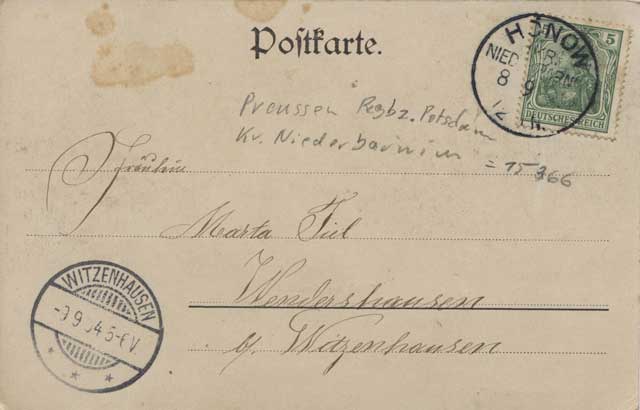 Postkarte.
HÖNOW
NIED
8 9
12
5
DEUTSCHES REICH
Preussen Regbz. Potsdam
Kr. Niederbarnim
= 15 366
Fräulein
Marta Fiel
Wendershausen
b/ Witzenhausen
WITZENHAUSEN
-9 9 04 5-6 V